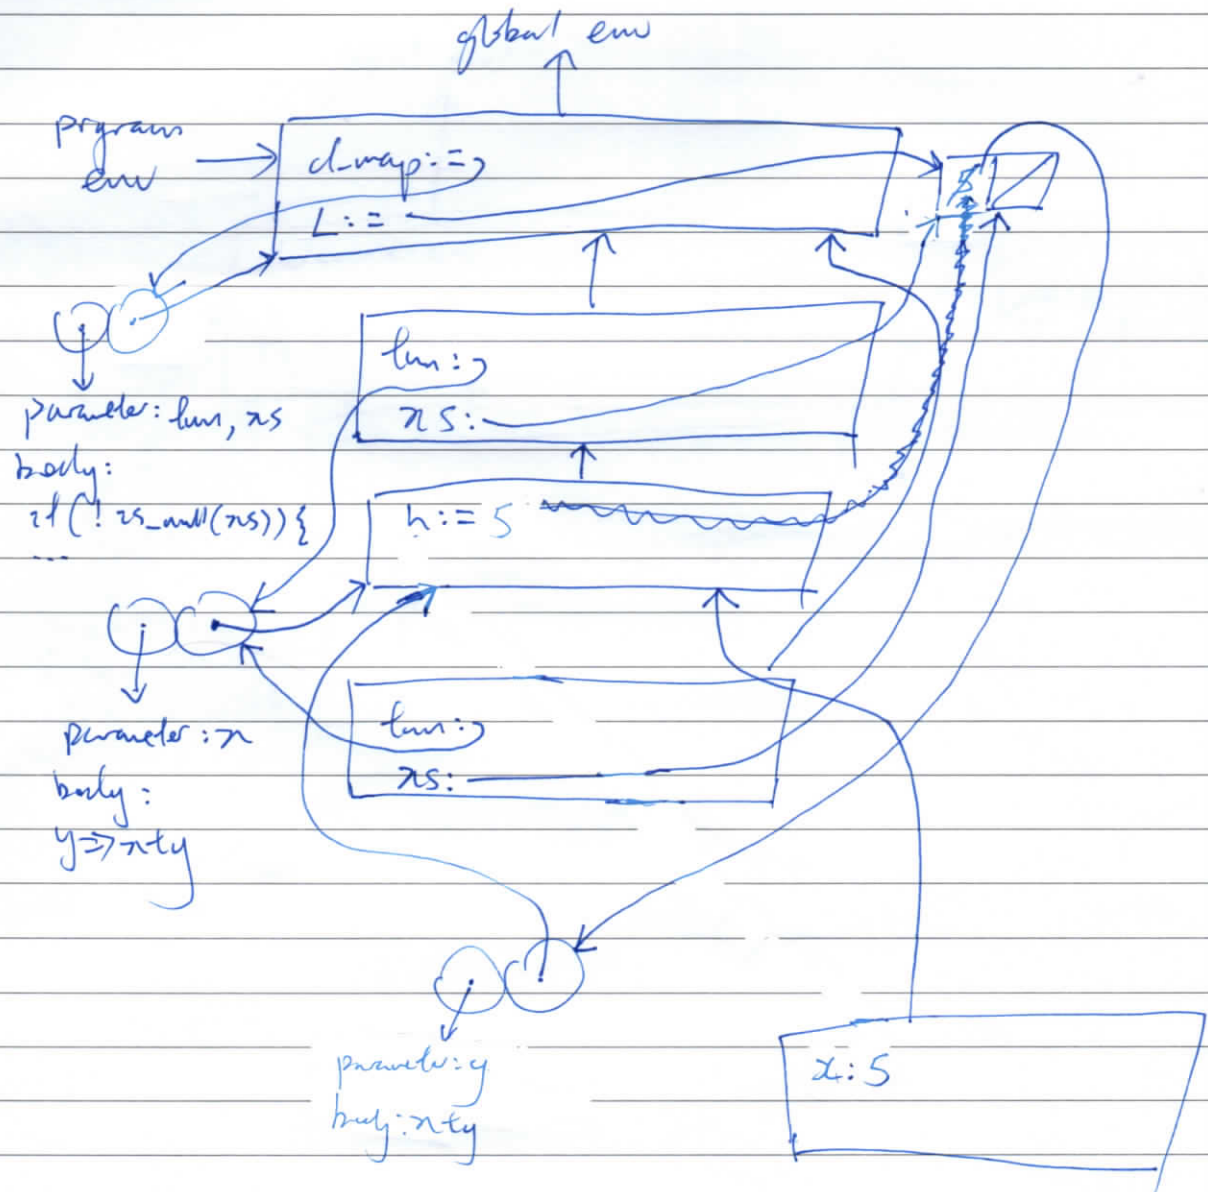 global env
prgram
env
d_map:=
L:=
5
parameter: fun, xs
body:
if(!is_null(xs)){
...
fun:
xs:
h:= 5
parameter: x
body:
y=>x+y
fun:
xs:
parameter: y
body: x+y
x: 5